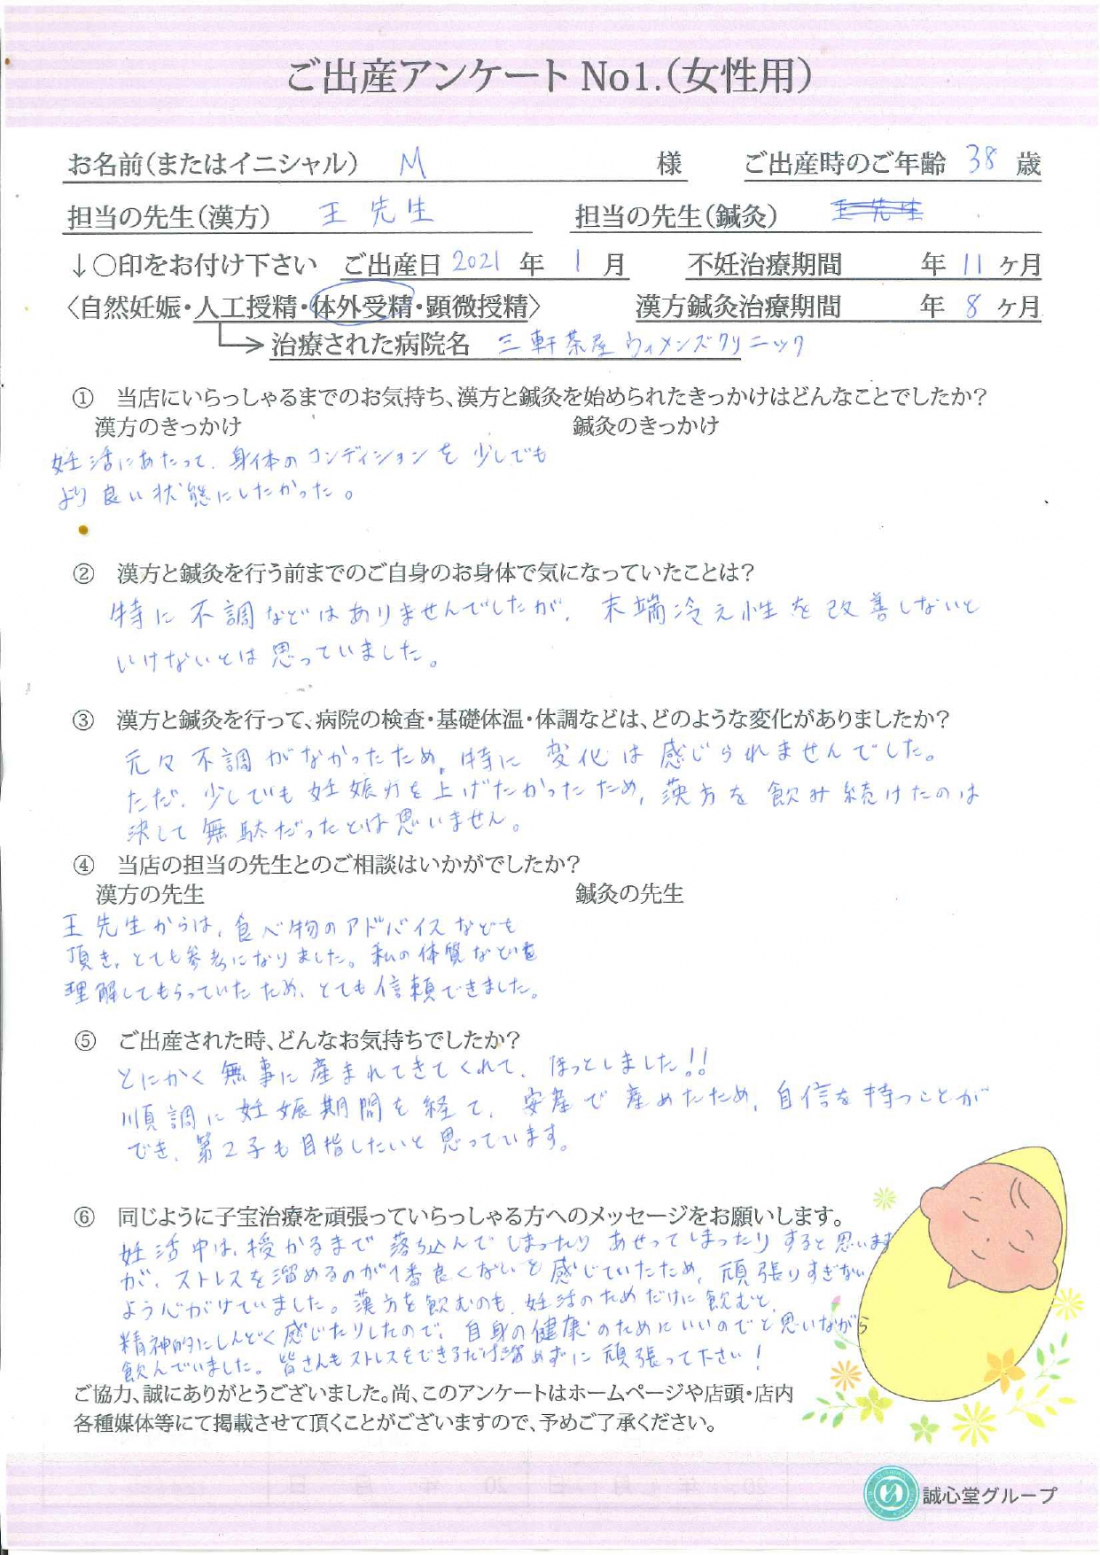 ご出産アンケート No1.（女性用）
お名前（またはイニシャル） M 様 ご出産時のご年齢 38 歳
担当の先生（漢方） 王先生 担当の先生（鍼灸） 王先生
↓○印をお付け下さい ご出産日 2021 年 1 月 不妊治療期間 年 11 ヶ月
〈自然妊娠・人工授精・体外受精・顕微授精〉 漢方鍼灸治療期間 年 8 ヶ月
治療された病院名 三軒茶屋ウィメンズクリニック
① 当店にいらっしゃるまでのお気持ち、漢方と鍼灸を始められたきっかけはどんなことでしたか？
漢方のきっかけ 鍼灸のきっかけ
妊活にあたって、身体のコンディションを少しでも
より良い状態にしたかった。
② 漢方と鍼灸を行う前までのご自身のお身体で気になっていたことは？
特に不調などはありませんでしたが、末端冷え性を改善しないと
いけないとは思っていました。
③ 漢方と鍼灸を行って、病院の検査・基礎体温・体調などは、どのような変化がありましたか？
元々不調がなかったため、特に変化は感じられませんでした。
ただ、少しでも妊娠力を上げたかったため、漢方を飲み続けたのは
決して無駄だったとは思いません。
④ 当店の担当の先生とのご相談はいかがでしたか？
漢方の先生 鍼灸の先生
王先生からは、食べ物のアドバイスなども
頂き、とても参考になりました。私の体質などを
理解してもらっていたため、とても信頼できました。
⑤ ご出産された時、どんなお気持ちでしたか？
とにかく無事に産まれてきてくれて、ほっとしました!!
順調に妊娠期間を経て、安産で産めたため、自信を持つことが
でき、第2子も目指したいと思っています。
⑥ 同じように子宝治療を頑張っていらっしゃる方へのメッセージをお願いします。
妊活中は、授かるまで落ち込んでしまったりあせってしまったりすると思います
が、ストレスを溜めるのが1番良くないと感じていたため、頑張りすぎない
よう心がけていました。漢方を飲むのも、妊活のためだけに飲むと、
精神的にしんどく感じたりしたので、自身の健康のためにいいのでと思いながら
飲んでいました。皆さんもストレスをできるだけ溜めずに頑張って下さい！
ご協力、誠にありがとうございました。尚、このアンケートはホームページや店頭・店内
各種媒体等にて掲載させて頂くことがございますので、予めご了承ください。
誠心堂グループ